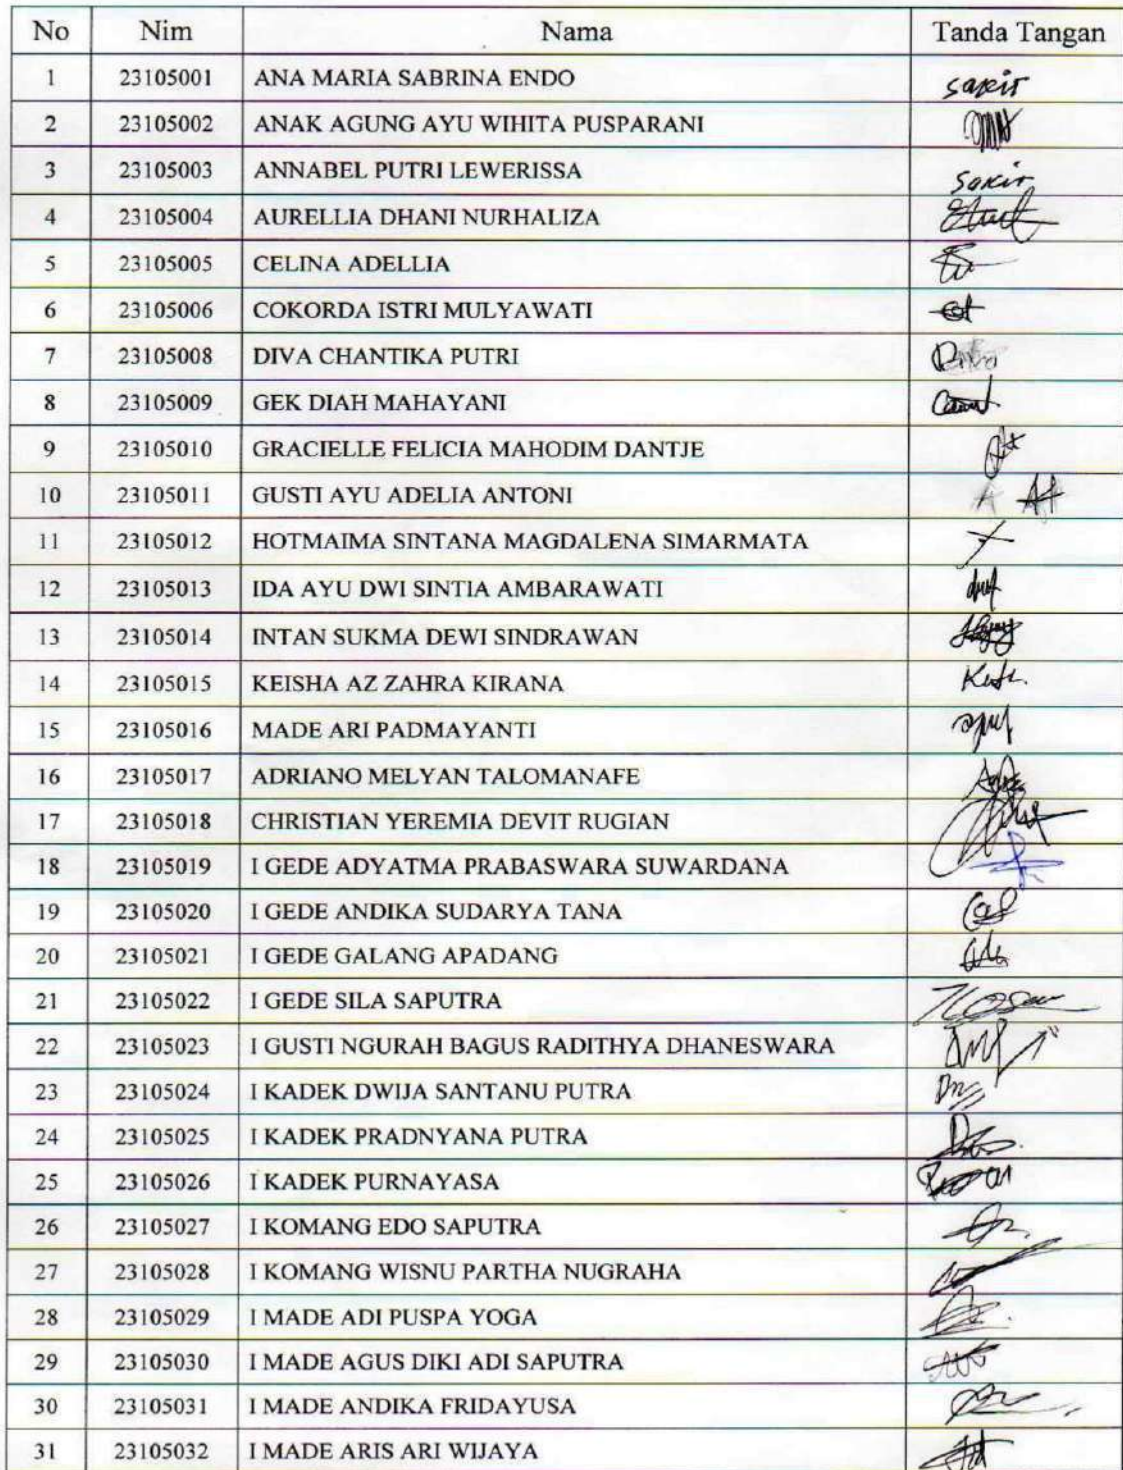 No Nim Nama Tanda Tangan
1 23105001 ANA MARIA SABRINA ENDO sakit
2 23105002 ANAK AGUNG AYU WIHITA PUSPARANI
3 23105003 ANNABEL PUTRI LEWERISSA sakit
4 23105004 AURELLIA DHANI NURHALIZA
5 23105005 CELINA ADELLIA
6 23105006 COKORDA ISTRI MULYAWATI
7 23105008 DIVA CHANTIKA PUTRI
8 23105009 GEK DIAH MAHAYANI
9 23105010 GRACIELLE FELICIA MAHODIM DANTJE
10 23105011 GUSTI AYU ADELIA ANTONI
11 23105012 HOTMAIMA SINTANA MAGDALENA SIMARMATA
12 23105013 IDA AYU DWI SINTIA AMBARAWATI
13 23105014 INTAN SUKMA DEWI SINDRAWAN
14 23105015 KEISHA AZ ZAHRA KIRANA
15 23105016 MADE ARI PADMAYANTI
16 23105017 ADRIANO MELYAN TALOMANAFE
17 23105018 CHRISTIAN YEREMIA DEVIT RUGIAN
18 23105019 I GEDE ADYATMA PRABASWARA SUWARDANA
19 23105020 I GEDE ANDIKA SUDARYA TANA
20 23105021 I GEDE GALANG APADANG
21 23105022 I GEDE SILA SAPUTRA
22 23105023 I GUSTI NGURAH BAGUS RADITHYA DHANESWARA
23 23105024 I KADEK DWIJA SANTANU PUTRA
24 23105025 I KADEK PRADNYANA PUTRA
25 23105026 I KADEK PURNAYASA
26 23105027 I KOMANG EDO SAPUTRA
27 23105028 I KOMANG WISNU PARTHA NUGRAHA
28 23105029 I MADE ADI PUSPA YOGA
29 23105030 I MADE AGUS DIKI ADI SAPUTRA
30 23105031 I MADE ANDIKA FRIDAYUSA
31 23105032 I MADE ARIS ARI WIJAYA